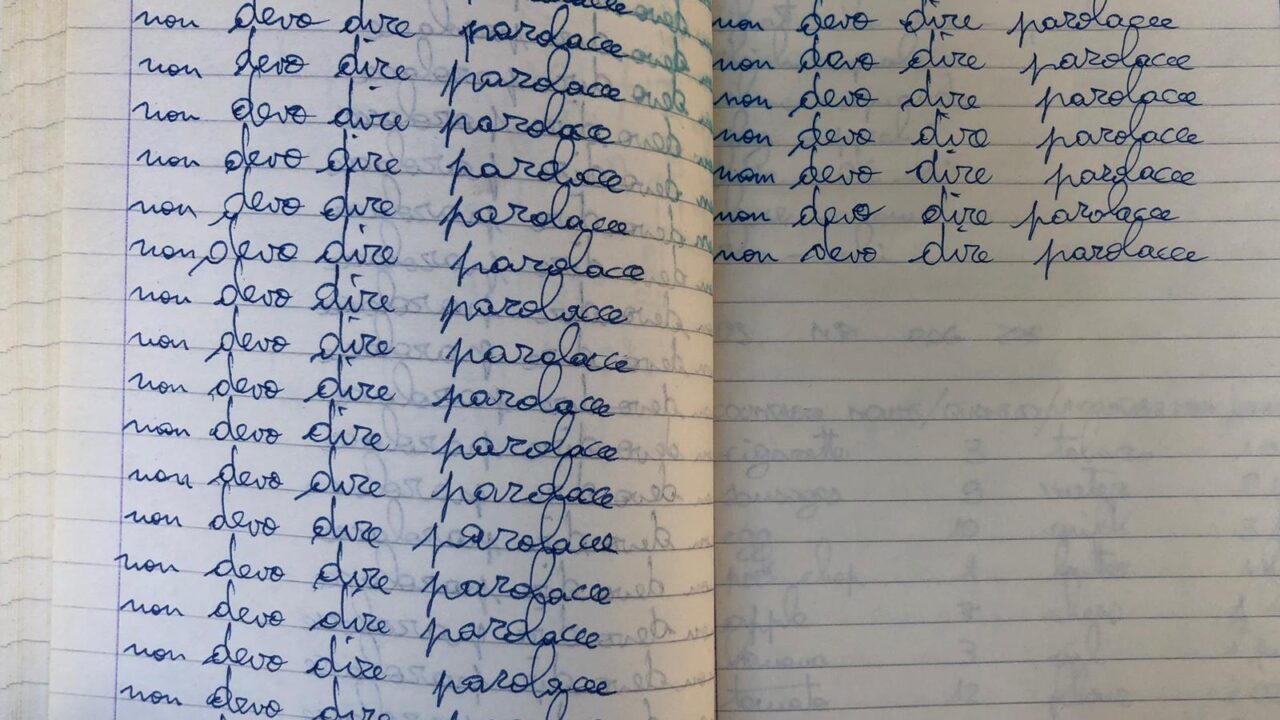 non devo dire parolacce
non devo dire parolacce
non devo dire parolacce
non devo dire parolacce
non devo dire parolacce
non devo dire parolacce
non devo dire parolacce
non devo dire parolacce
non devo dire parolacce
non devo dire parolacce
non devo dire parolacce
non devo dire parolacce
non devo dire parolacce
non devo dire parolacce
non devo dire parolacce
non devo dire
non devo dire parolacce
non devo dire parolacce
non devo dire parolacce
non devo dire parolacce
non devo dire parolacce
non devo dire parolacce
non devo dire parolacce